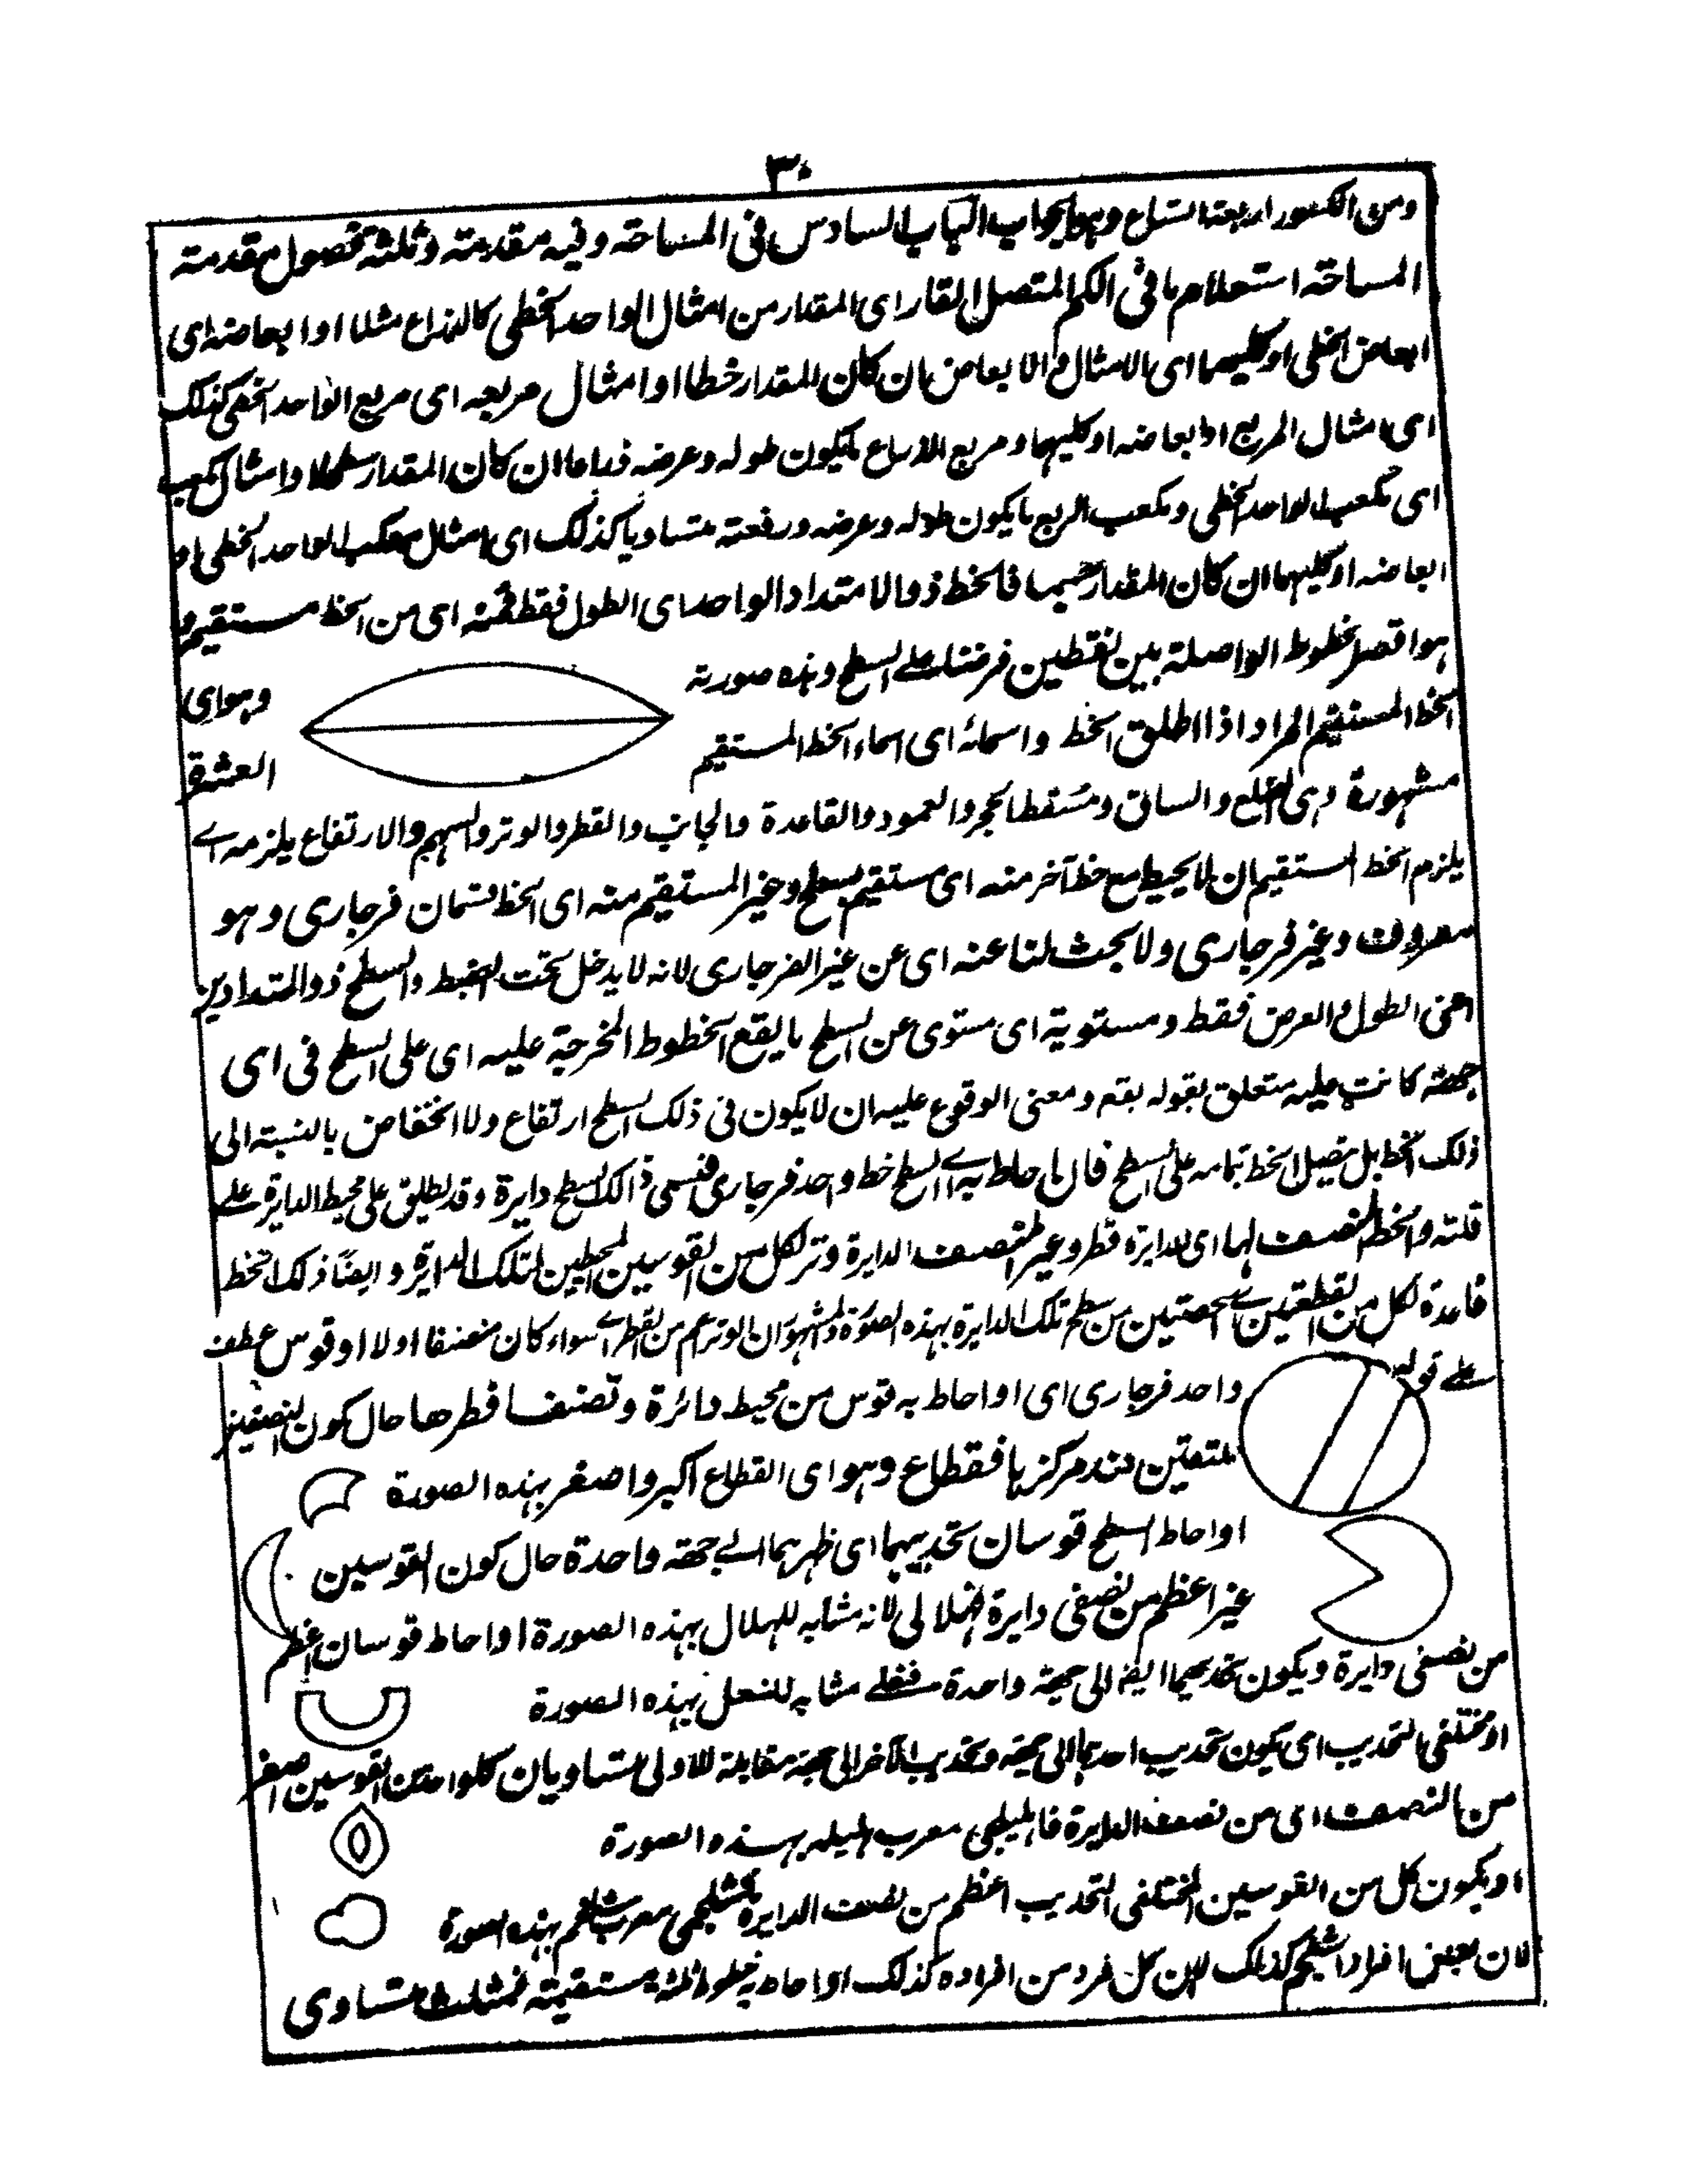 ٣٠
ومن الكسور اربعة اتساع وهو الجواب الباب السادس فى المساحة وفيه مقدمة وثلثة فصول مقدمة
المساحة استعلام ما فى الكم المتصل القار اى المقدار من امثال الواحد الخطى كالذراع مثلا او ابعاضه اى
ابعاض الخطى او كليهما اى الامثال و الابعاض ان كان المقدار خطا او امثال مربعه اى مربع الواحد الخطى كذلك
اى امثال المربع او ابعاضه او كليهما ومربع الذراع ما يكون طوله وعرضه ذراعا ان كان المقدار سطحا او امثال مكعبه
اى مكعب الواحد الخطى ومكعب الربع ما يكون طوله وعرضه ورفعته متساويا كذلك اى امثال مكعب الواحد الخطى او
ابعاضه او كليهما ان كان المقدار جسما فالخط ذو الامتداد الواحد اى الطول فقط فمنه اى من الخط مستقيم و
هو اقصر الخطوط الواصلة بين نقطتين فرضتا على السطح وهذه صورية وهو اى
الخط المستقيم المراد اذا اطلق الخط واسمائه اى اسماء الخط المستقيم العشرة
مشهورة وهى الضلع والساق ومسقط الحجر والعمود والقاعدة والجانب والقطر والوتر والسهم والارتفاع يلزمه اے
يلزم الخط المستقيم ان لا يحيط مع خط آخر منه اى مستقيم بسطح وغير المستقيم منه اى الخط قسمان فرجارى وهو
معروف وغير فرجارى ولا بحث لنا عنه اى عن غير الفرجارى لانه لا يدخل تحت الضبط والسطح ذو المتدادين
اعنى الطول والعرض فقط ومستوية اى مستوى عن السطح ما يقع الخطوط المخرجة عليه اى على السطح فى اى
جهة كانت عليه متعلق بقوله يقع ومعنى الوقوع عليه ان لا يكون فى ذلك السطح ارتفاع ولا انخفاض بالنسبة الى
ذلك الخط بل يتصل الخط بتمامه على السطح فان احاط به اے السطح خط واحد فرجارى فيسمى ذالك السطح دايرة وقد يطلق على محيط الدايرة علے
قلته والخط المنصف لها اى للدايرة قطر وغير المنصف الدايرة وتر لكل من القوسين المحيطين لتلك الدايرة وايضا ذلك الخط
قاعدة لكل من القطعتين اے الحصتين من سطح تلك الدايرة بهذه الصورة والمشهور ان الوتر اعم من القطر اے سواء كان منصفا او لا او قوس عطف
علے قوله واحد فرجارى اى او احاط به قوس من محيط دائرة ونصفا قطرها حال كون النصفين
ملتقيين عند مركزها فقطاع وهو اى القطاع اكبر واصغر بهذه الصورة
او احاط السطح قوسان تحديبهما اى ظهرهما الے جهة واحدة حال كون القوسين
غير اعظم من نصفى دايرة فهلالى لانه مشابه للهلال بهذه الصورة او احاط قوسان اعظم
من نصفى دايرة ويكون تحديبهما ايضا الى جهة واحدة فنعلے مشابه للنعل بهذه الصورة
او مختلفى التحديب اى يكون تحديب احدهما الى جهة وتحديب الآخر الى جهة مقابلة للاولى متساويان كلواحد من القوسين اصغر
من النصف اى من نصف الدايرة فاهليلجى معرب هليله بهذه الصورة
او يكون كل من القوسين المختلفى التحديب اعظم من نصف الدايرة فشلجمى معرب شلغم بهذه الصورة
لان بعض افراد الشلجم كذلك لا ان كل فرد من افراده كذلك او احاط به خطوط ثلثة مستقيمة فمثلث متساوى